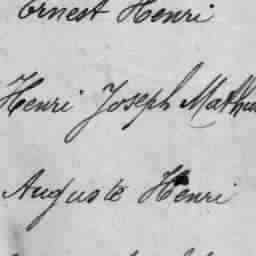 Ernest Henri
Henri Joseph
Auguste Henri